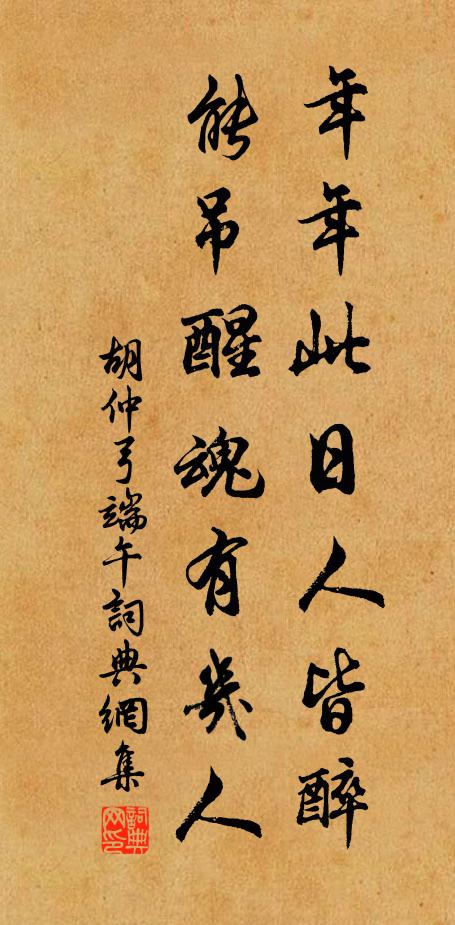 年年此日人皆醉
能吊醒魂有幾人
胡仲弓端午詞典網集
詞典网印